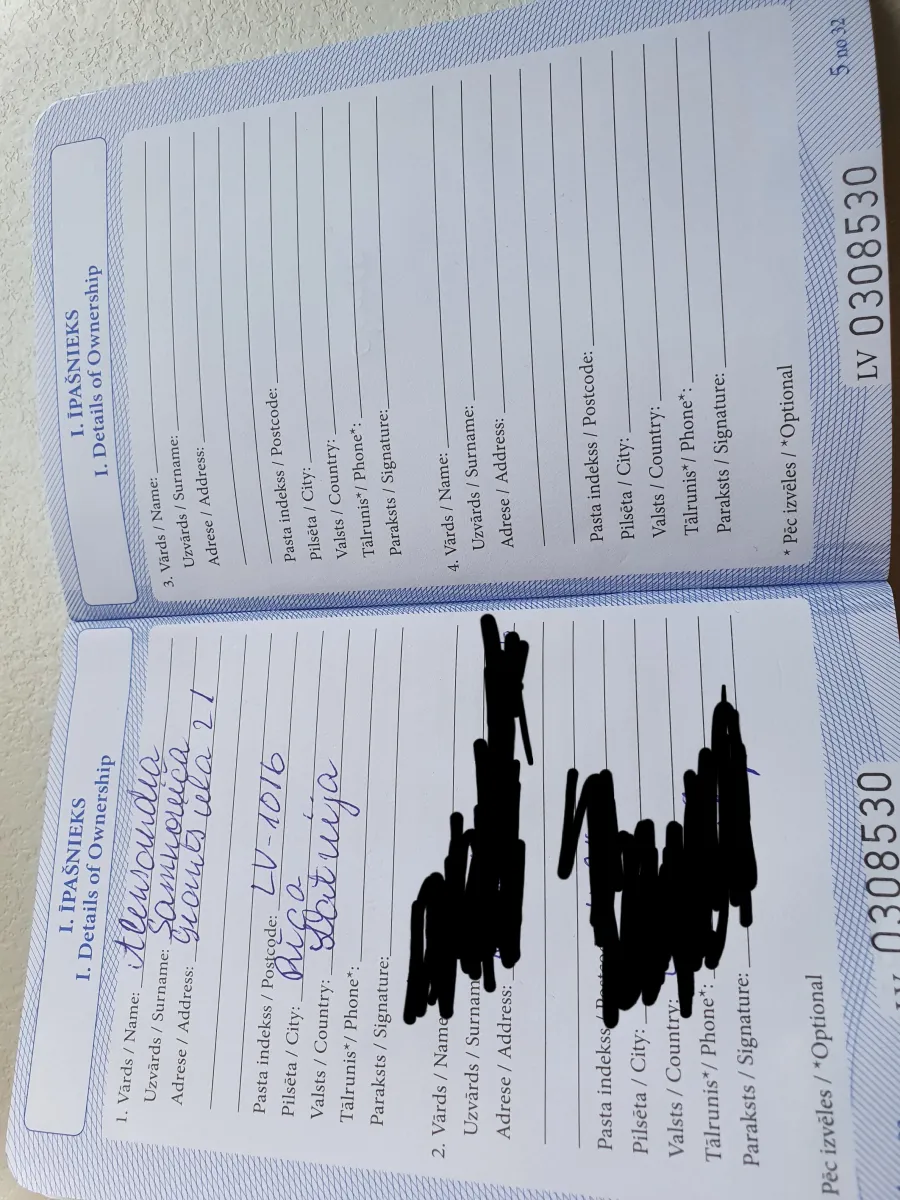 I. ĪPAŠNIEKS
I. Details of Ownership
1. Vārds / Name:
Uzvārds / Surname:
Adrese / Address: 21
Pasta indekss / Postcode: LV-1016
Pilsēta / City: Rīga
Valsts / Country: Latvija
Tālrunis*/ Phone*:
Paraksts / Signature:
2. Vārds / Name
Uzvārds / Surnam
Adrese / Address:
Pasta indekss
Pilsēta / City:
Valsts / Country:
Tālrunis*/ Phone*:
Paraksts / Signature:
Pēc izvēles / *Optional
0308530
I. ĪPAŠNIEKS
I. Details of Ownership
3. Vārds / Name:
Uzvārds / Surname:
Adrese / Address:
Pasta indekss / Postcode:
Pilsēta / City:
Valsts / Country:
Tālrunis*/ Phone*:
Paraksts / Signature:
4. Vārds / Name:
Uzvārds / Surname:
Adrese / Address:
Pasta indekss / Postcode:
Pilsēta / City:
Valsts / Country:
Tālrunis*/ Phone*:
Paraksts / Signature:
* Pēc izvēles / *Optional
5 no 32
LV 0308530